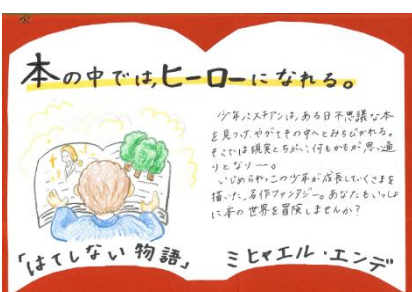 本の中では,ヒーローになれる。
少年バスチアンは,ある日不思議な本
を見つけ,やがてその中へとみちびかれる。
そこでは現実とちがい,何もかもが思い通
りとなり―。
いじめられっこの少年が成長していくさまを
描いた,名作ファンタジー。あなたもいっしょ
に本の世界を冒険しませんか?
「はてしない物語」
ミヒャエル・エンデ